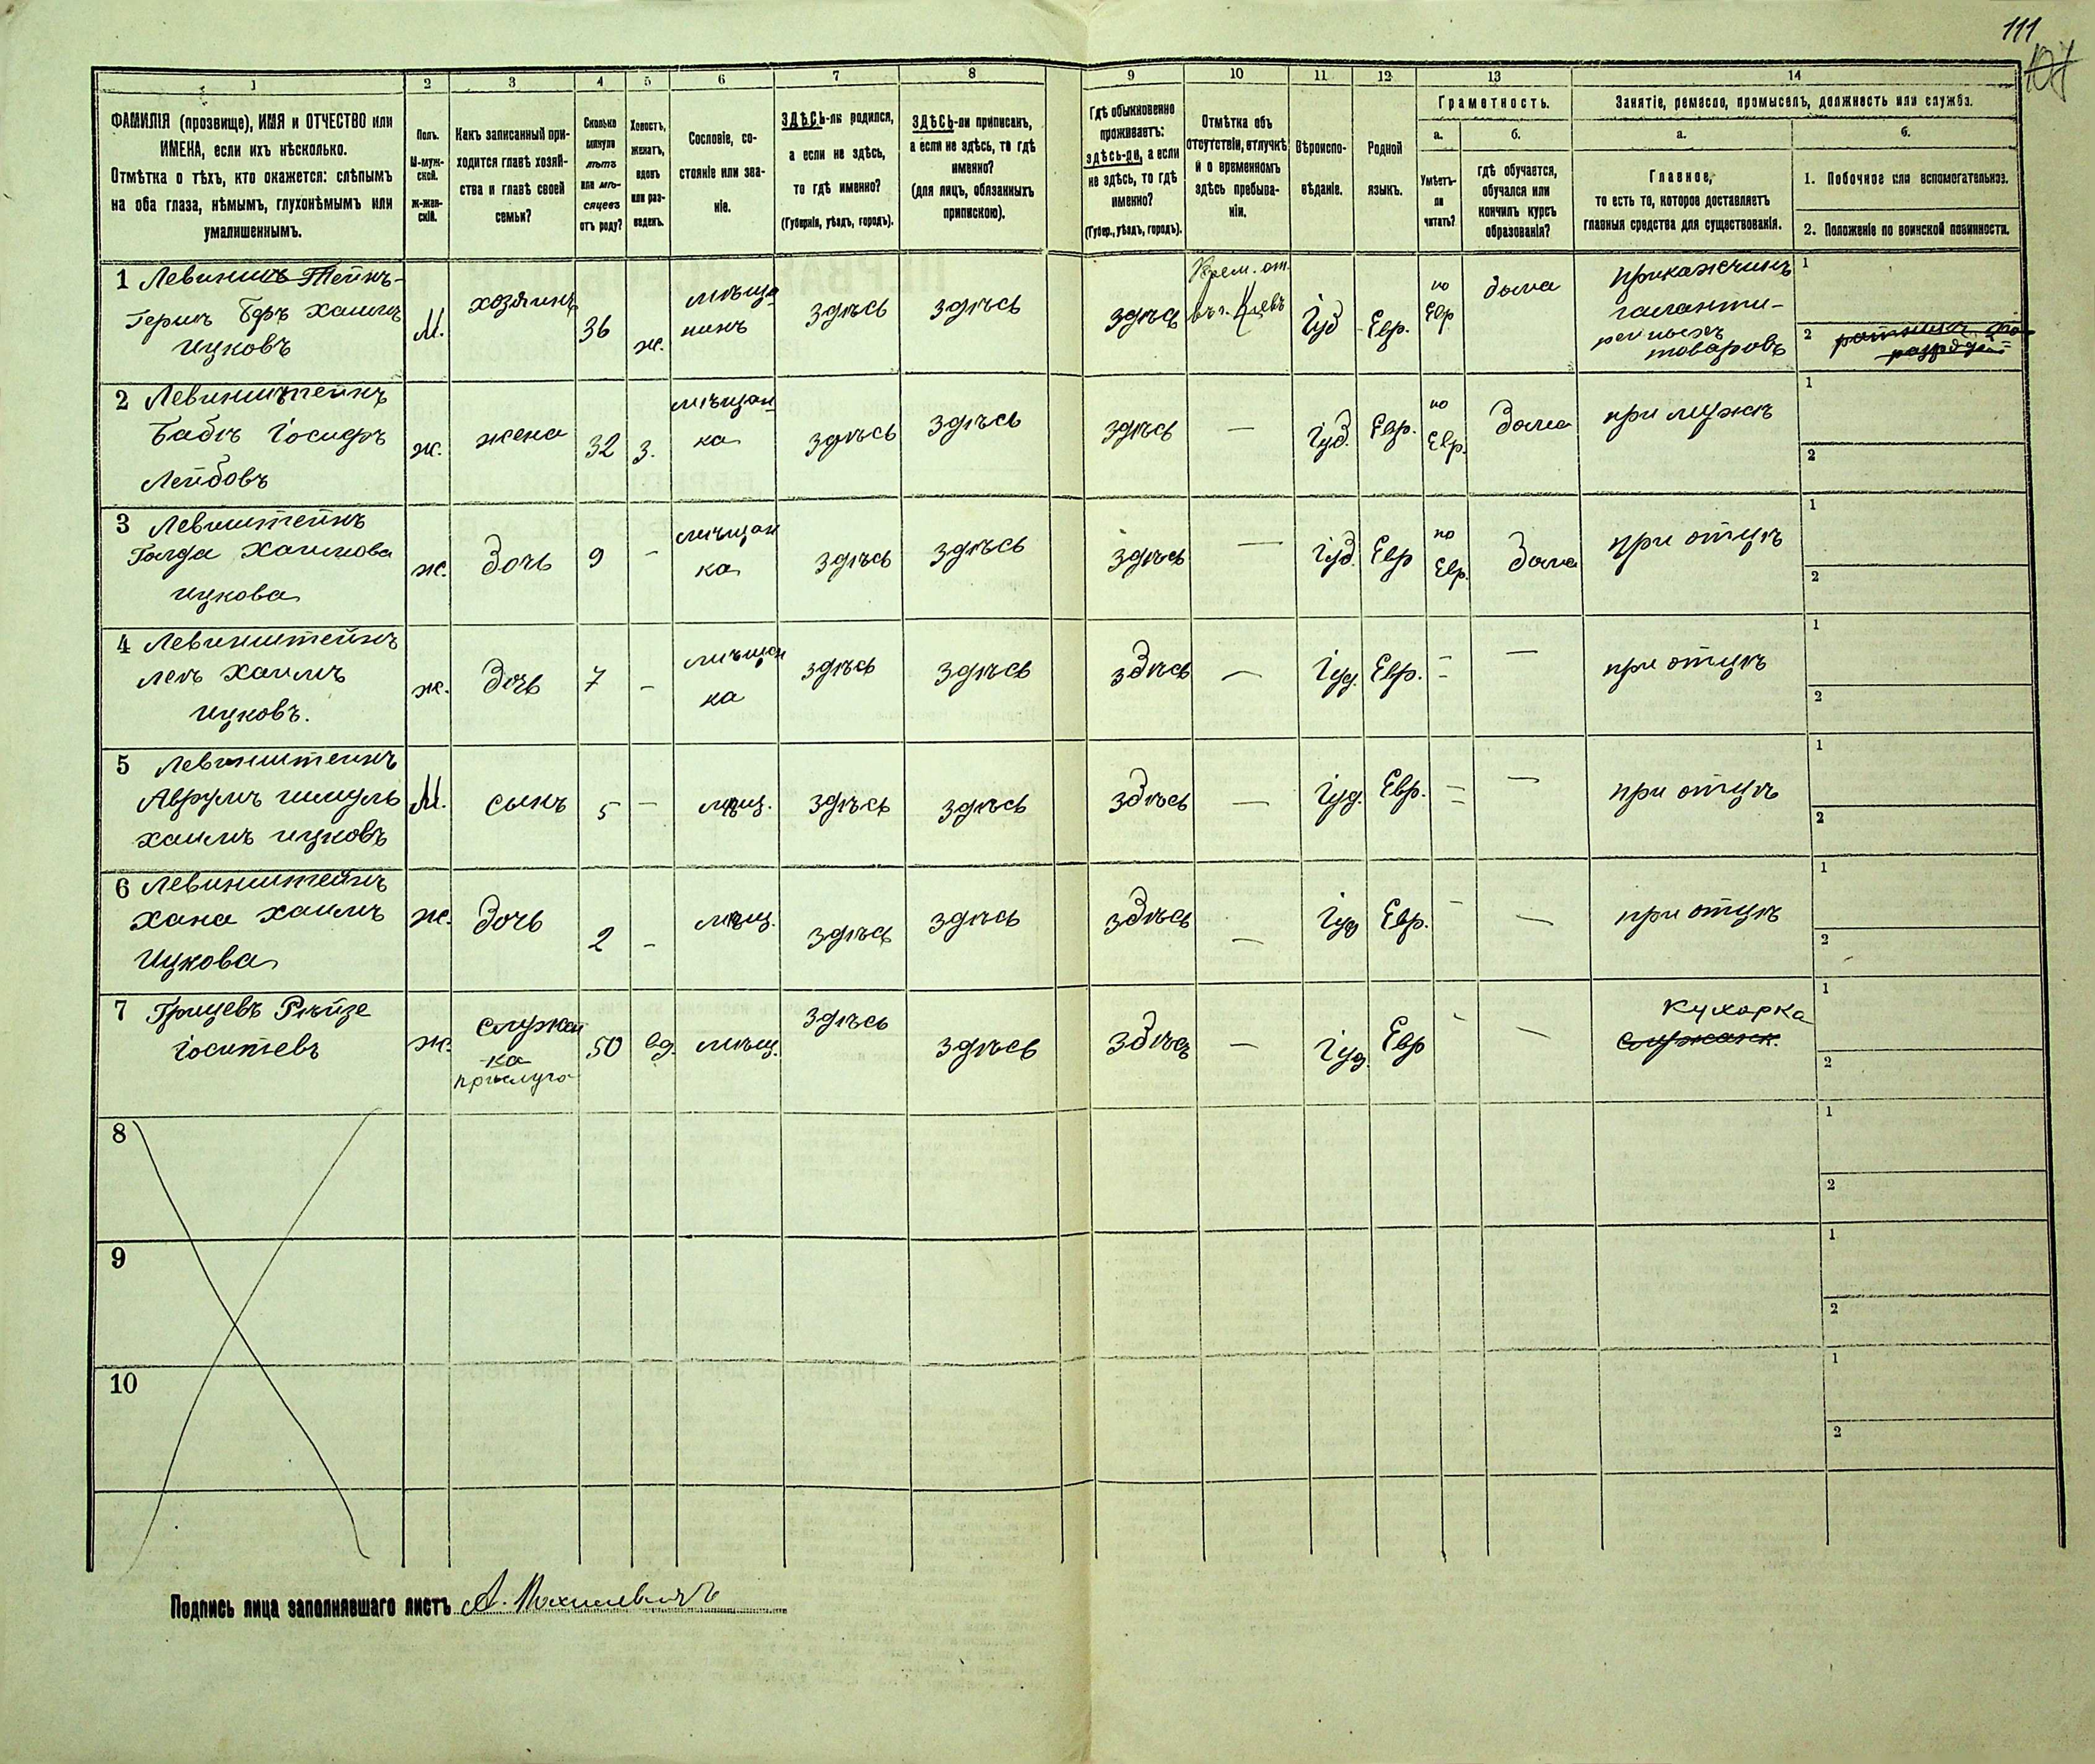 111
107
1
2
3
4
5
6
7
8
9
10
11
12
13
14
ФАМИЛІЯ (прозвище), ИМЯ и ОТЧЕСТВО или
ИМЕНА, если ихъ нѣсколько.
Отмѣтка о тѣхъ, кто окажется: слѣпымъ
на оба глаза, нѣмымъ, глухонѣмымъ или
умалишеннымъ.
Полъ.
М-муж-
ской.
ж-жен-
скій.
Какъ записанный при-
ходится главѣ хозяй-
ства и главѣ своей
семьи?
Сколько
минуло
лѣтъ
или мѣ-
сяцевъ
отъ роду?
Холостъ,
женатъ,
вдовъ
или раз-
веденъ.
Сословіе, со-
стояніе или зва-
ніе.
ЗДѢСЬ-ли родился,
а если не здѣсь,
то гдѣ именно?
(Губернія, уѣздъ, городъ).
ЗДѢСЬ-ли приписанъ,
а если не здѣсь, то гдѣ
именно?
(для лицъ, обязанныхъ
припискою).
Гдѣ обыкновенно
проживаетъ:
здѣсь-ли, а если
не здѣсь, то гдѣ
именно?
(Губер., уѣздъ, городъ).
Отмѣтка объ
отсутствіи, отлучкѣ
и о временномъ
здѣсь пребыва-
ніи.
Вѣроиспо-
вѣданіе.
Родной
языкъ.
Грамотность.
а.
Умѣетъ-
ли
читать?
б.
гдѣ обучается,
обучался или
кончилъ курсъ
образованія?
Занятіе, ремесло, промыселъ, должность или служба.
а.
Главное,
то есть то, которое доставляетъ
главныя средства для существованія.
б.
1. Побочное или вспомогательное.
2. Положеніе по воинской повинности.
1 Левинштейнъ
Хаимъ
Ицковъ
М.
хозяинъ
36
ж.
мѣща
нинъ
здѣсь
здѣсь
здѣсь
Врем. от.
въ г. Кіевъ
Іуд
Евр.
по
Евр
дома
прикажчикъ
галанти-
рейныхъ
товаровъ
1
2
2 Левинштейнъ
Іосифъ
Лейбовъ
ж.
жена
32
З.
мѣщан
ка
здѣсь
здѣсь
здѣсь
—
Іуд.
Евр.
по
Евр.
Дома
при мужѣ
1
2
3 Левинштейнъ
Голда Хаимова
Ицкова
ж.
Дочь
9
-
мѣщан
ка
здѣсь
здѣсь
здѣсь
—
Іуд.
Евр
по
Евр.
Дома
при отцѣ
1
2
4 Левинштейнъ
Хаимъ
Ицковъ.
ж.
Дочь
7
-
мѣщан
ка
здѣсь
здѣсь
здѣсь
—
Іуд.
Евр.
—
—
при отцѣ
1
2
5 Левинштейнъ
Аврумъ Шмуль
Хаимъ Ицковъ
М.
сынъ
5
-
мѣщ.
здѣсь
здѣсь
здѣсь
—
Іуд.
Евр.
—
—
при отцѣ
1
2
6 Левинштейнъ
Хана Хаимъ
Ицкова
ж.
Дочь
2
-
мѣщ.
здѣсь
здѣсь
здѣсь
—
Іуд
Евр.
-
—
при отцѣ
1
2
7 Грицевъ Рѣйзе
ж.
служан
ка
прислуга
50
вд.
мѣщ.
здѣсь
здѣсь
здѣсь
—
Іуд.
Евр
-
—
Кухарка
служанк.
1
2
8
1
2
9
1
2
10
1
2
Подпись лица заполнявшаго листъ А.